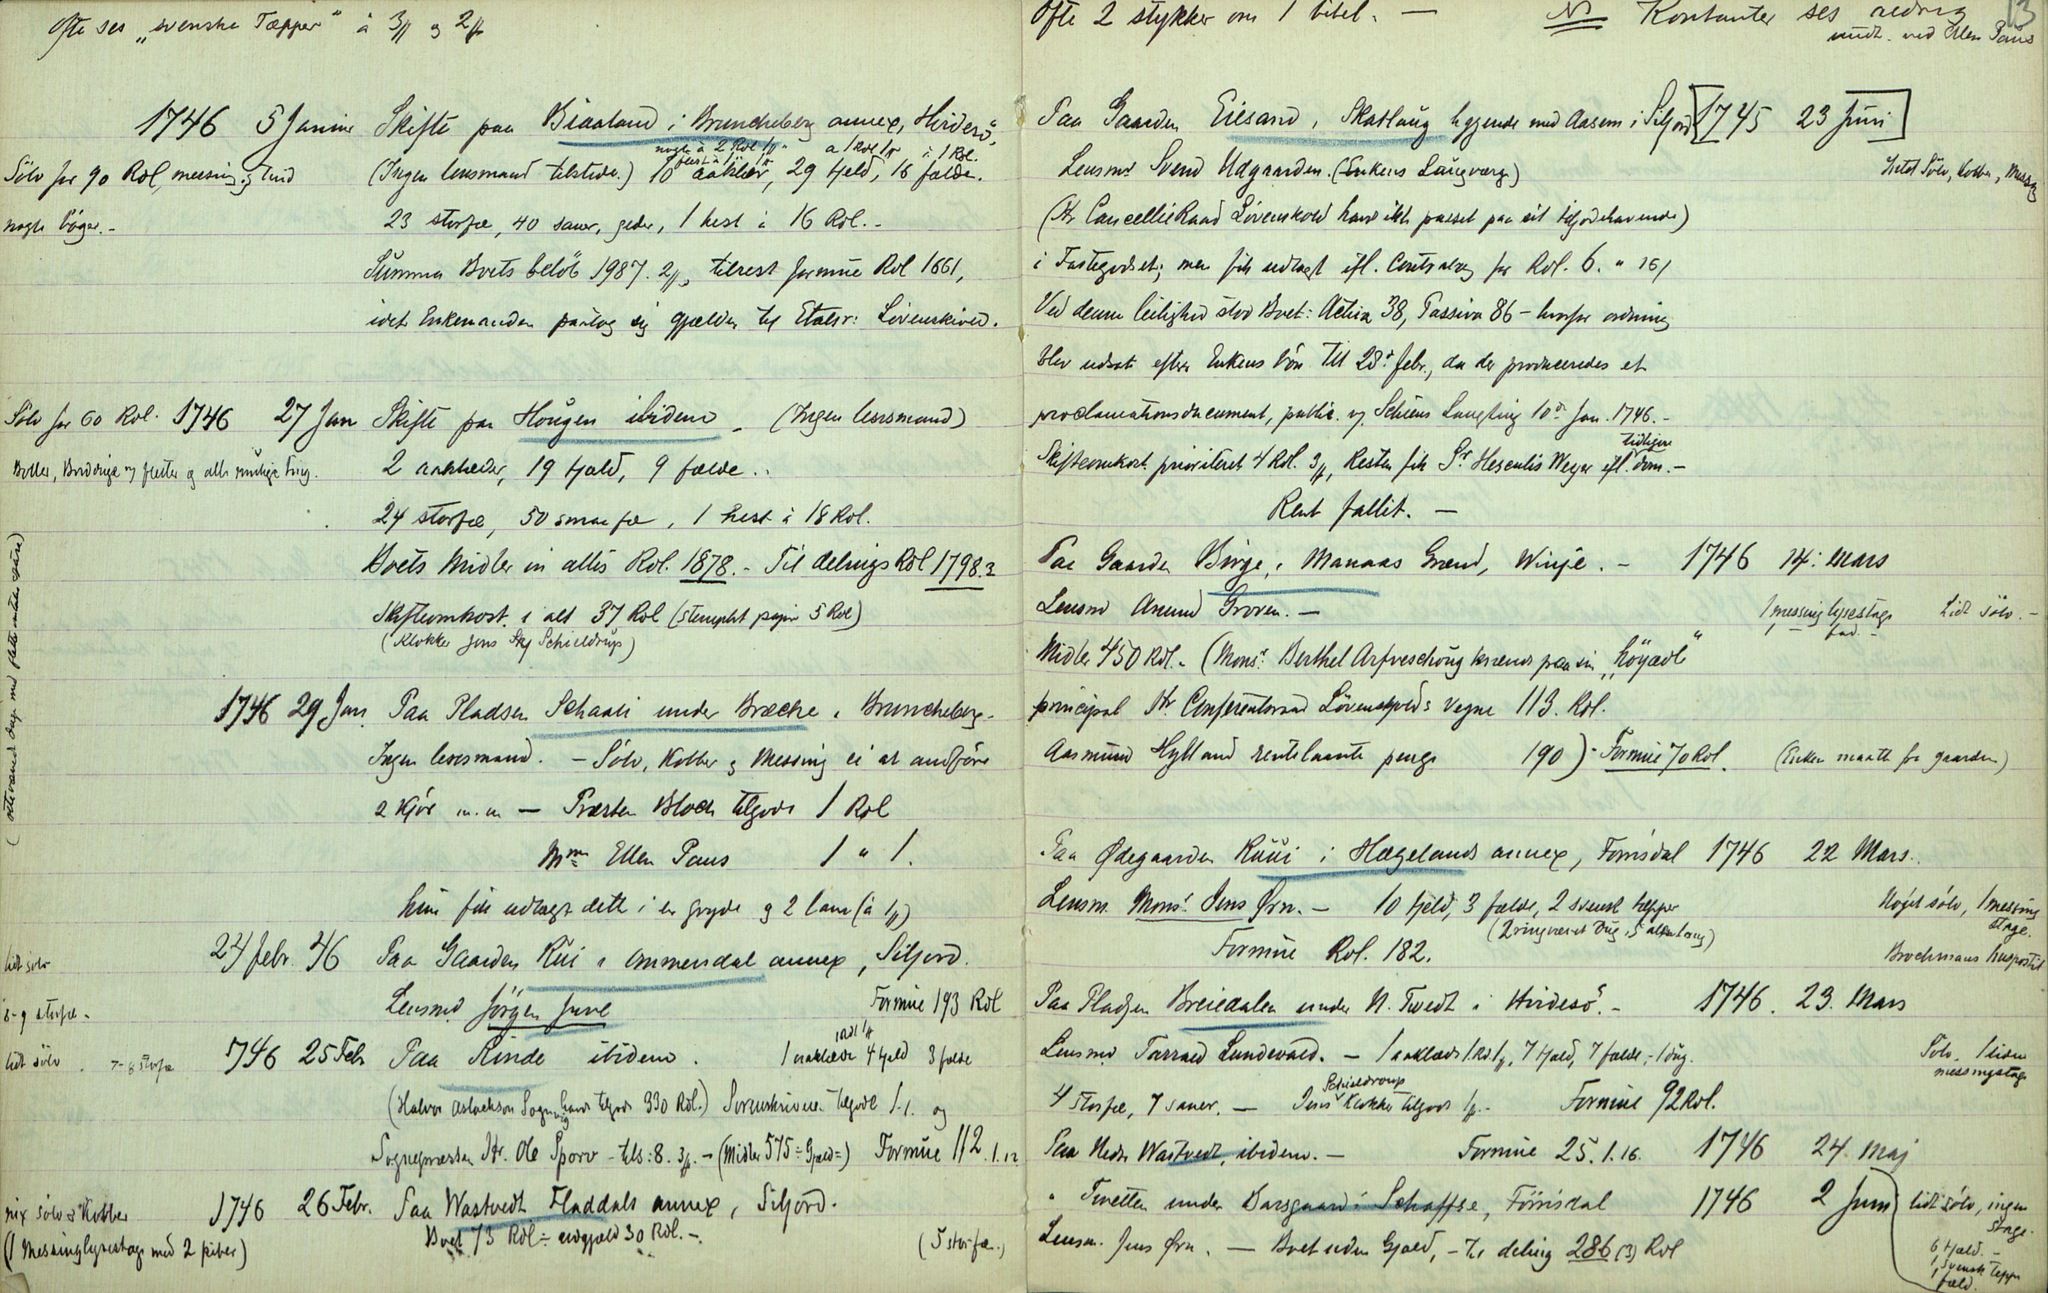 Ofte ses „svenske Tæpper" à 3 og 2
1746 5 Januar Skifte paa Biaaland i Bruncheberg annex, Hvidesö.
nogle à 2 Rdl à 1 Rdl à 1 Rdl.
Sölv for 90 Rdl, messing og tind
(Ingen lensmand tilstede.) 10 aaklær, 29 fjeld, 16 fælde.
nogle böger. -
23 storfæ, 40 sauer, geder, 1 hest à 16 Rdl. -
Summa Boets belöb 1987. 2, tilrest formue Rdl 1661,
idet Enkemanden paatog sig gjælden til Etatsr: Lövenskiold.
Sölv for 60 Rdl. 1746 27 Jan Skifte paa Hougen ibidem - (Ingen lensmand)
og alle mulige Ting.
2 aaklæder, 19 fjeld, 9 fælde.
24 storfæ, 50 smaafæ, 1 hest à 18 Rdl.
Boets Midler in alles Rdl. 1878. - Til delings Rdl 1798.3
Skifteomkost. i alt 37 Rdl (stemplet papir 5 Rdl)
(Klokker Jens Schieldrup)
1746 29 Jan. Paa Pladsen Schaali under Bræcke i Bruncheberg -
Ingen lensmand. - Sölv, Kobber og Messing ei at anföre
2 kjör m.m - Præsten Bloch tilgode 1 Rdl
Mme Ellen Paus 1 " 1.
hun fik udlagt dette i en gryde og 2 lam (à 1)
lidt sölv
24 febr. 46 Paa Gaarden Rui i Ammendal annex, Siljord.
8-9 storfæ -
Lensmd Jörgen Juvl Formue 193 Rdl
lidt sölv 7-8 storfæ 1746 25 Feb Paa Rinde ibidem. 1 aaklæde 4 fjeld 3 fælde
(Halvor Aslachson havde tilgode 330 Rdl.) Sorenskriveren tilgode 1.1. og
Sognepræsten Hr. Ole Sporv - tils: 8. 3. - (Midler 575 ÷ Gjæld =) Formue 112.1.12
nix sölv og Kobber
1746 26 Febr. Paa Wastvedt Fladdals annex, Siljord.
(1 Messinglysestage med 2 piber)
Boet 73 Rdl ÷ udgjæld 30 Rdl. -. (5 storfæ.)
Ofte 2 stykker om 1 bibel. - NB Kontanter ses aldrig
undt. ved Ellen Paus
13
Paa Gaarden Eilsand, i Skatlaug liggende med Aasem i Siljord [1745 23 Juni]
Lensmd Svend Udgaarden. (Enkens Laugværge)
lidet Sölv, Kobber, Messing
(Hr CancellieRaad Lövenskiold havde ikke passet paa sit tilgodehavende)
i Fastegodset; men fik udlagt for Rdl. 6. " 16/
Ved denne leilighed stod Boet: Activa 38, Passiva 86 - hvorfor ordning
blev udsat efter Enkens bön til 28de febr., da der produceredes et
proclamationsdocument, public. Schiens Laugting 10de Jan. 1746. -
Skifteomkost. prioriteret 4 Rdl. 3, Resten fik Sr Weyer efl. tidligere dom. -
Rent fallit. -
Paa Gaarden Birge i Manaas Grænd, Winje. - 1746 14: Mars
Lensmd Amund Groven. -
1 messing lysestage fad. - Lidt sölv. -
Midler 450 Rdl. - (Monsr: Berthel paa sin „höyædl"
principal Hr. Conferentsraad Lövenskiolds vegne 113. Rdl.
Aasmund Hylland rentelaante penge 190) - Formue 70 Rdl. (Enken maatte fra gaarden)
Paa Ødegaarden Ruui i Hægelands annex, Forrisdal 1746 22 Mars.
Lensm. Monsr Jens Ørn. - 10 fjeld, 3 fælde, 2 svensk tæpper
Noget sölv, 1 messing stage.
Formue Rdl. 182.
Brochmans huspostil
Paa Pladsen Breiedalen under N. Tvedt i Hvidesö. - 1746. 23. Mars
Lensmd Tarrald Lundevald. - 1 aaklæde 1 Rdl, 7 fjeld, 7 fælde, 1 dug.
Sölv, 1 liden messingstage
4 storfæ, 7 sauer. - Jens Schieldroup Klokker tilgode 1. - Formue 92 Rdl.
Paa Nedre Wastvedt, ibidem. - Formue 25. 1. 16. 1746 24. Maj
" Tvetten under Barsgaard i Schaffse, Förrisdal 1746 2 Juni
lidt sölv, ingen stage.
Lensm. Jens Ørn. - Boet uden Gjæld, - til deling 286 (3) Rdl
6 fjæld. -
1 svensk teppe
1 fæld.